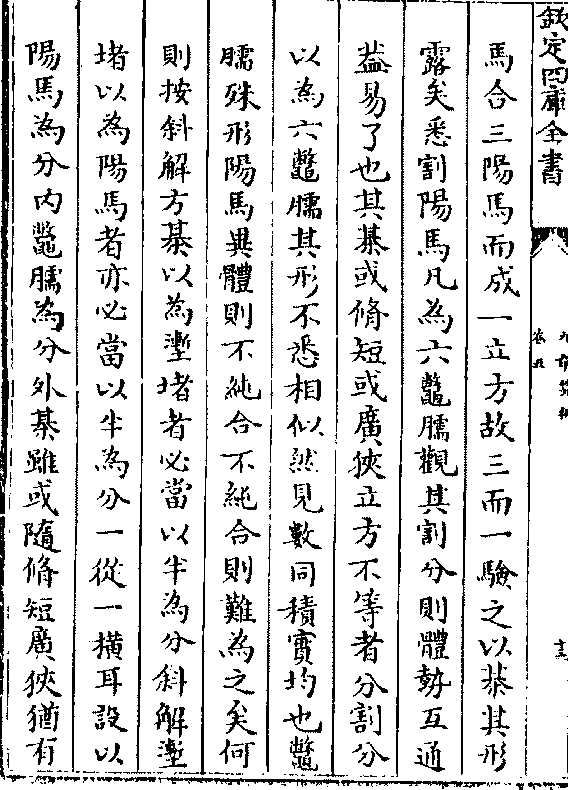 欽定四庫全書
卷五
馬合三陽馬而成一立方故三而一驗之以棊其形
露矣悉割陽馬凡為六鼈臑觀其割分則體勢互通
葢易了也其棊或脩短或廣狹立方不等者分割分
以為六鼈臑其形不悉相似然見數同積實均也鼈
臑殊形陽馬異體則不純合不純合則難為之矣何
則按斜解方棊以為壍堵者必當以半為分斜解壍
堵以為陽馬者亦必當以半為分一從一橫耳設以
陽馬為分内鼈臑為分外棊雖或隨脩短廣狹猶有